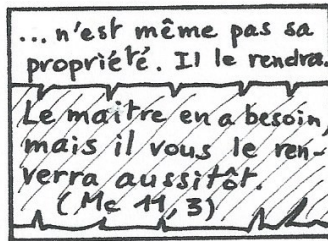 ... n'est même pas sa
propriété. Il le rendra.
Le maitre en a besoin,
mais il vous le ren-
verra aussitôt.
(Mc 11, 3)